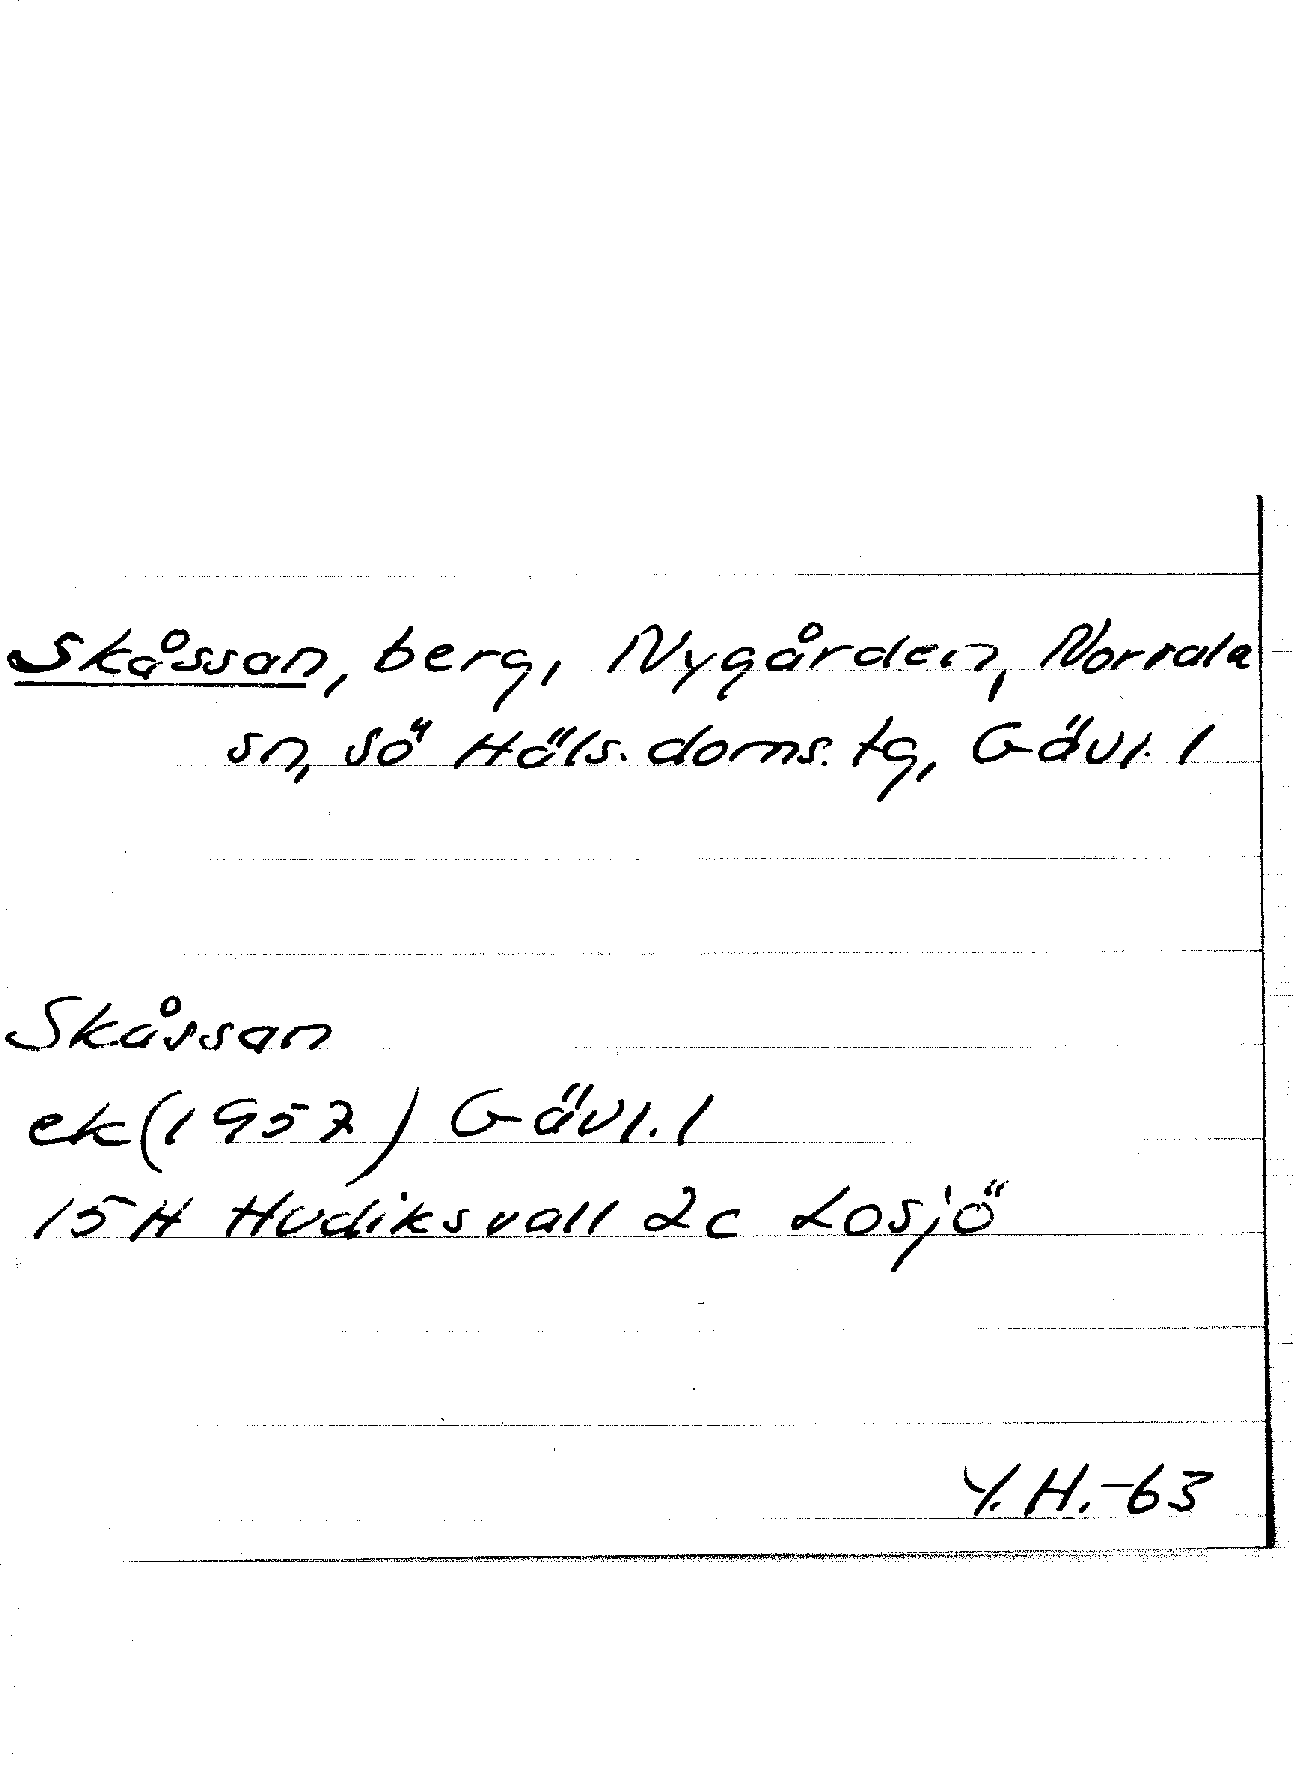 Skåssan, berg, Nygården, Norrala
sn, Sö Häls. doms. tg, Gävl. l
Skåssan
ek (1957) Gävl. l
15H Hudiksvall 2c Losjö
Y.H.-63